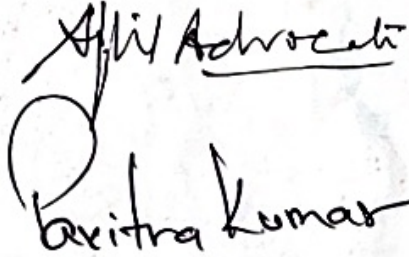 Advocate
Pavitra Kumar